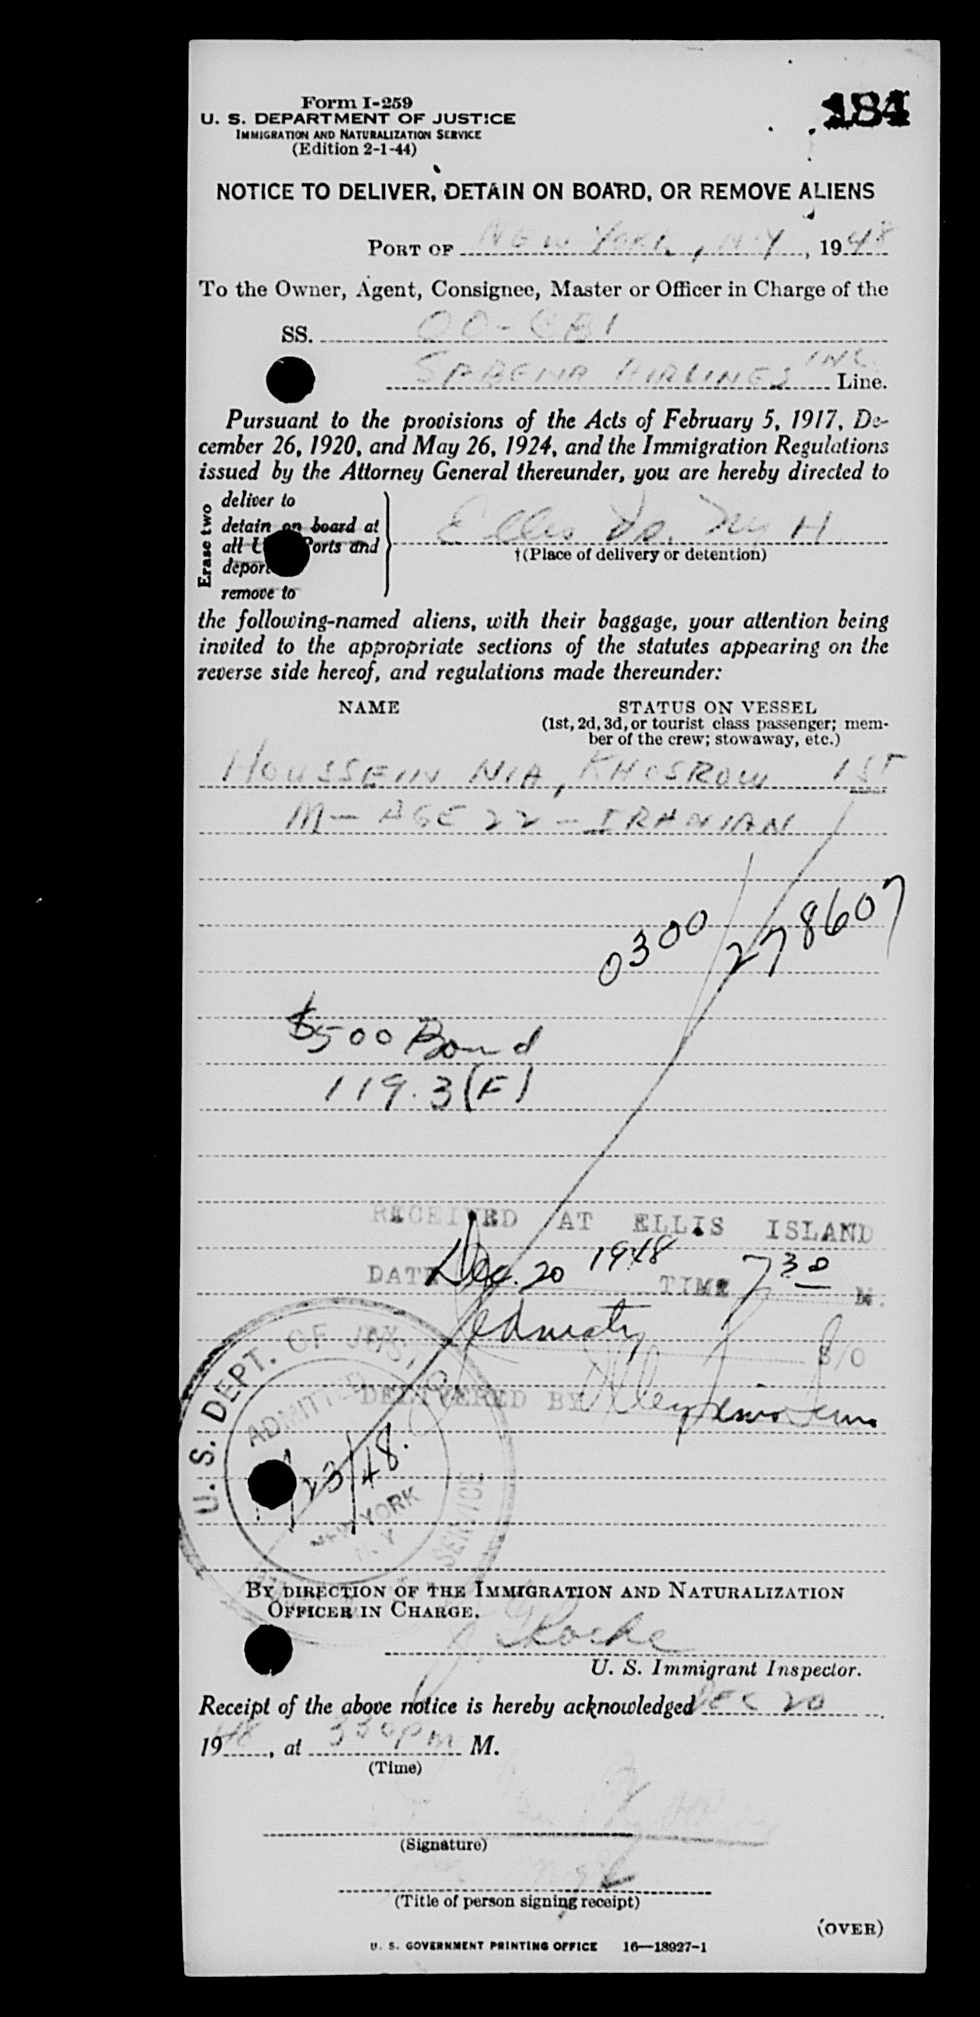 Form I-259
U. S. DEPARTMENT OF JUSTICE
IMMIGRATION AND NATURALIZATION SERVICE
(Edition 2-1-44)
184
NOTICE TO DELIVER, DETAIN ON BOARD, OR REMOVE ALIENS
PORT OF New York, N.Y., 1948
To the Owner, Agent, Consignee, Master or Officer in Charge of the
SS. OO-CBI
SABENA AIRLINES INC. Line.
Pursuant to the provisions of the Acts of February 5, 1917, De-
cember 26, 1920, and May 26, 1924, and the Immigration Regulations
issued by the Attorney General thereunder, you are hereby directed to
Erase two
deliver to
detain on board at
all U Ports and
deport
remove to
Ellis Is. NY H
†(Place of delivery or detention)
the following-named aliens, with their baggage, your attention being
invited to the appropriate sections of the statutes appearing on the
reverse side hereof, and regulations made thereunder:
NAME STATUS ON VESSEL
(1st, 2d, 3d, or tourist class passenger; mem-
ber of the crew; stowaway, etc.)
HOUSSEIN NIA, KHOSROW 1ST
M - AGE 22 - IRANIAN
0300/278607
$500 Bond
119.3(F)
RECEIVED AT ELLIS ISLAND
DATE Dec. 20 1948 TIME 7 30 M.
S/O
DELIVERED BY
U. S. DEPT. OF JUSTICE
ADMITTED
23/48.
NEW YORK
N. Y.
SERVICE
BY DIRECTION OF THE IMMIGRATION AND NATURALIZATION
OFFICER IN CHARGE.
U. S. Immigrant Inspector.
Receipt of the above notice is hereby acknowledged DEC 20
1948, at 330 pm M.
(Time)
(Signature)
(Title of person signing receipt)
(OVER)
U. S. GOVERNMENT PRINTING OFFICE 16—18927-1